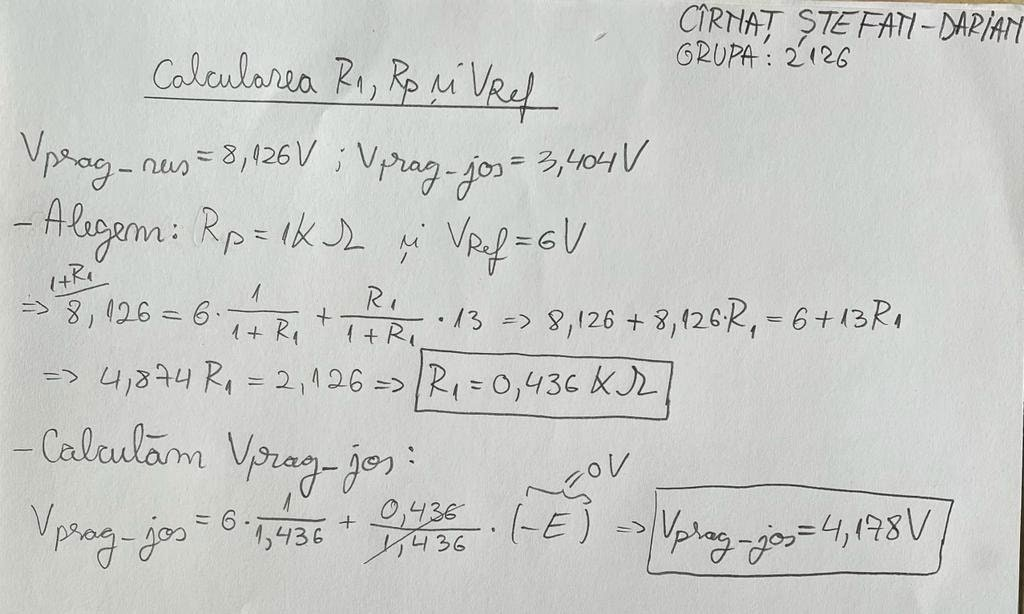 CÎRNAȚ ȘTEFAN-DARIAN
GRUPA: 2126
Calcularea R1, Rp și VRef
Vprag_sus = 8,126V ; Vprag_jos = 3,404V
- Alegem: Rp = 1kΩ și VRef = 6V
1+R1
=> 8,126 = 6 · 1/(1+R1) + R1/(1+R1) · 13 => 8,126 + 8,126·R1 = 6 + 13R1
=> 4,874 R1 = 2,126 => R1 = 0,436 kΩ
- Calculăm Vprag_jos:
=0V
Vprag_jos = 6 · 1/1,436 + 0,436/1,436 · (-E) => Vprag_jos = 4,178V